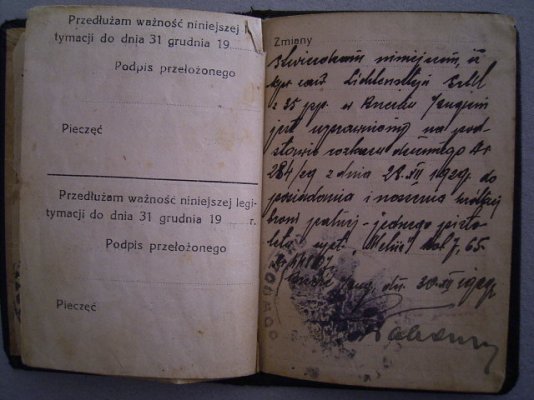 Przedłużam ważność niniejszej le
tymacji do dnia 31 grudnia 19
Podpis przełożonego
Pieczęć
Przedłużam ważność niniejszej legi-
tymacji do dnia 31 grudnia 19 r.
Podpis przełożonego
Pieczęć
Zmiany
Stwierdzam niniejszem, iż
kpr. zaw.
z 35 pp. w
jest uprawniony na pod-
stawie rozkazu dziennego Nr
284/29 z dnia 28.XII 1929 r. do
posiadania i noszenia krótkiej
broni palnej - jednego pisto-
letu syst. kal. 7,65.
dn. 30.XII 1929 r.